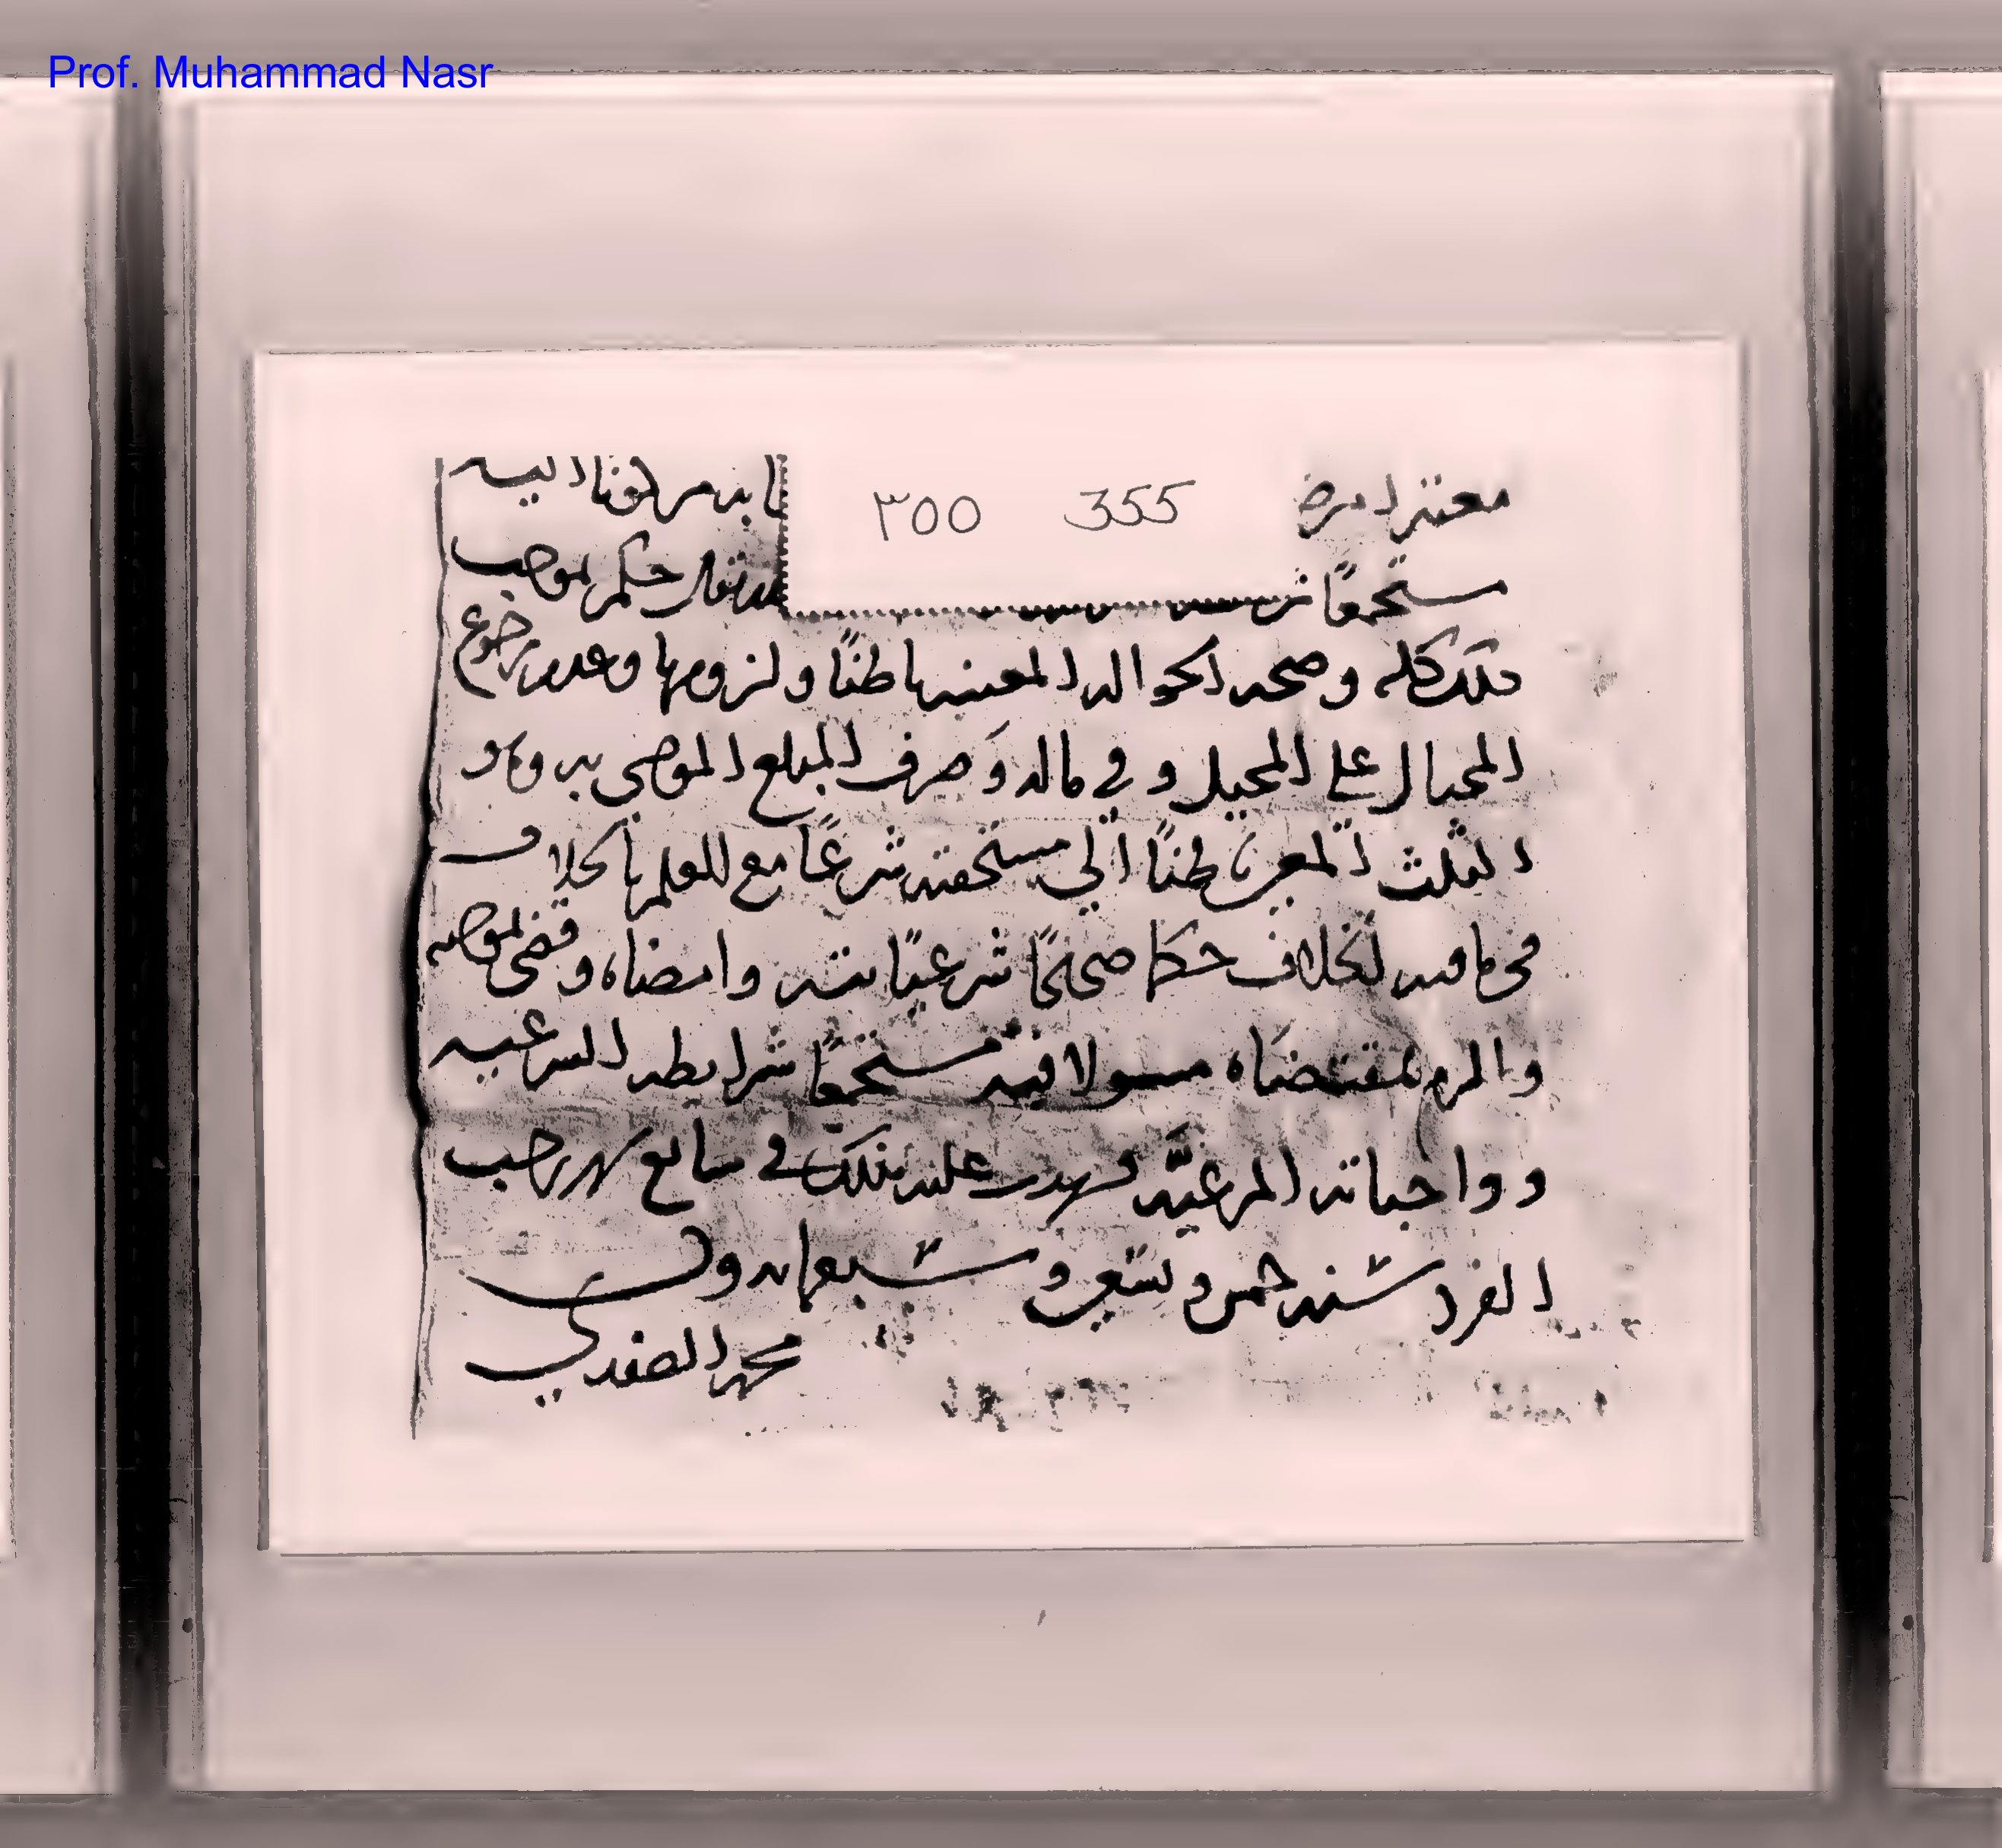 Prof. Muhammad Nasr
٣٥٥ 355
مستجمعًا حكم بموجب
ذلك كله وصحة الحوالة المعينة باطنًا ولزومها وعدم رجوع
المحتال على المحيل وفي ماله وصرف المبلغ الموصى به وهو
الثلث المعين باطنًا الى مستحقيه شرعًا مع العلم بالخلاف
فيما فيه الخلاف حكما صحيحًا شرعيًا وامضاه وقضى بموجبه
والزم بمقتضاه مسولا فيه مستجمعًا شرايطه الشرعيه
وواجباته المرعيَّه شهدت عليه بذلك في سابع شهر رجب
الفرد سنة خمس و وسبعمايه وكتب
محمد الصفدي